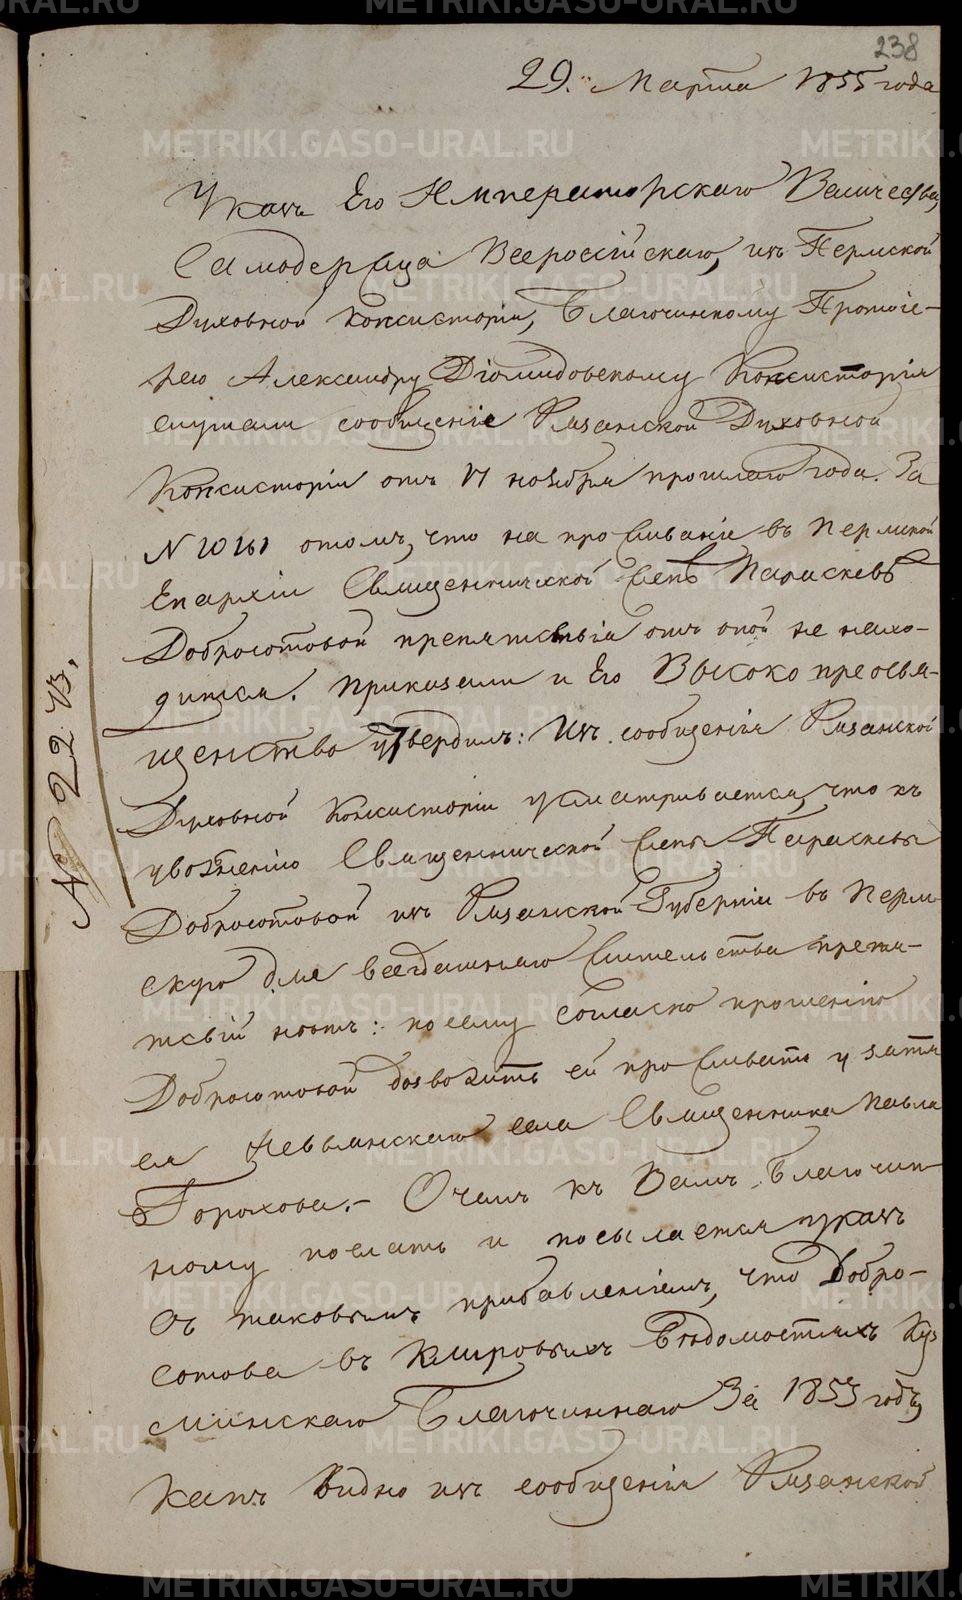 238
29. Марта 1855 года
Указъ Его Императорскаго Величества,
Самодержца Всероссійскаго, изъ Пермской
Духовной Консисторіи, Благочинному Протоіе-
рею Александру Діомидовскому Консисторія
слушали сообщеніе Рязанской Духовной
Консисторіи отъ 17 ноября прошлаго года. За
N 10161 о томъ, что на проживаніе въ Пермской
Епархіи Священнической женѣ Параскевѣ
Добросотовой препятствія отъ оной не нахо-
дится. Приказали и Его Высокопреосвя-
щенство утвердилъ: Изъ сообщенія Рязанской
Духовной Консисторіи усматривается, что къ
увольнению Священнической жены Параскевы
Добросотовой изъ Рязанской Губерніи въ Перм-
скую для всегдашняго жительства препя-
тствій нѣтъ: по сему согласно прошенію
Добросотовой дозволить ей проживать у зятя
ея Невьянскаго села Священника Павла
Горохова. - О чемъ къ Вамъ, Благочин-
ному послать и посылается указъ
съ таковымъ прибавленіемъ, что Добро-
сотова въ Клировыхъ Вѣдомостяхъ Куз
минскаго Благочиннаго За 1853 годъ,
Какъ видно изъ сообщенія Рязанской
№ 223.
METRIKI.GASO-URAL.RU